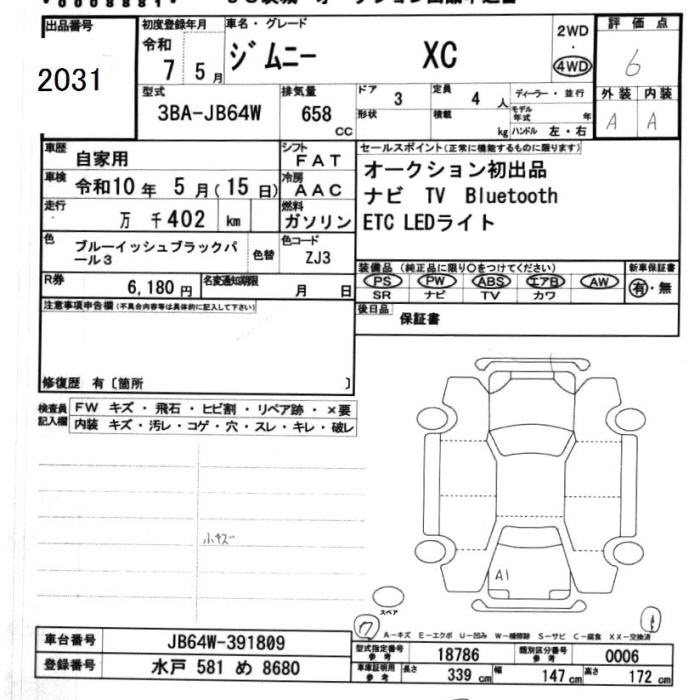 出品番号
2031
初度登録年月
令和
7 5月
車名・グレード
ジムニー XC
2WD
・
4WD
評価点
6
外装 内装
A A
型式
3BA-JB64W
排気量
658
CC
ドア
3
定員
4 人
形状
積載
kg
ディーラー・並行
モデル年式 年
ハンドル 左・右
車歴
自家用
シフト
FAT
車検
令和10年 5月(15日)
冷房
AAC
走行
万 千402 km
燃料
ガソリン
色
ブルーイッシュブラックパール3
色替
色コード
ZJ3
R券
6,180円
名変通知期限
月 日
セールスポイント(正常に機能するものに限ります)
オークション初出品
ナビ TV Bluetooth
ETC LEDライト
装備品 (純正品に限り○をつけてください)
PS PW ABS エアB AW
SR ナビ TV カワ
新車保証書
有・無
後日品
保証書
注意事項申告欄(不具合内容等は具体的に記入して下さい)
修復歴 有〔箇所 〕
検査員
記入欄
FW キズ・飛石・ヒビ割・リペア跡・×要
内装 キズ・汚レ・コゲ・穴・スレ・キレ・破レ
小キズ
A1
スペア
A-キズ E-エクボ U-凹み W-補修跡 S-サビ C-腐食 XX-交換済
車台番号
JB64W-391809
登録番号
水戸 581 め 8680
型式指定番号
参考
18786
類別区分番号
参考
0006
車庫証明用
参考
長さ
339 cm
幅
147 cm
高さ
172 cm